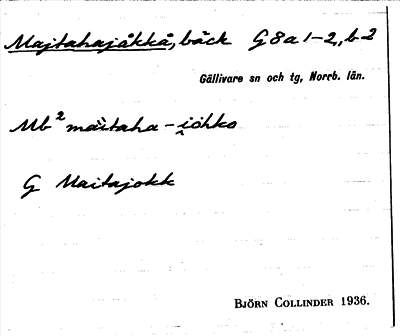 Majtahajåkkå, bäck G8a1-2, b2
Gällivare sn och tg, Norrb. län.
Mb² maitaha-iohko
G Maitajokk
BJÖRN COLLINDER 1936.